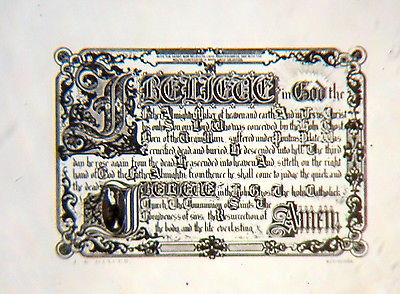 I BELIEVE in God the
Father Almighty Maker of heaven and earth And in Jesus Christ
his only Son our Lord Who was conceived by the Holy Ghost
Born of the Virgin Mary Suffered under Pontius Pilate Was
crucified dead and buried He descended into hell The third
day he rose again from the dead He ascended into heaven And sitteth on the right
hand of God the Father Almighty From thence he shall come to judge the quick and
the dead
I BELIEVE in the Holy Ghost The holy Catholick
Church The Communion of Saints The
Forgiveness of sins The Resurrection of
the body and the life everlasting
Amen